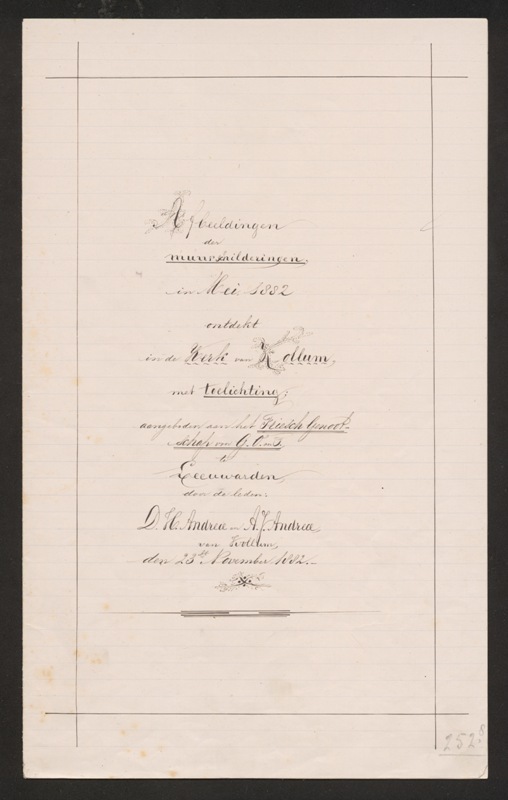 Afbeeldingen
der
muurschilderingen,
in Mei 1882
ontdekt
in de Kerk van Kollum,
met toelichting;
aangeboden aan het Friesch Genoot-
schap van G. O. en T.
te
Leeuwarden
door de leden:
D. H. Andreæ en A. J. Andreæ,
van Kollum,
den 23sten November 1882.
252